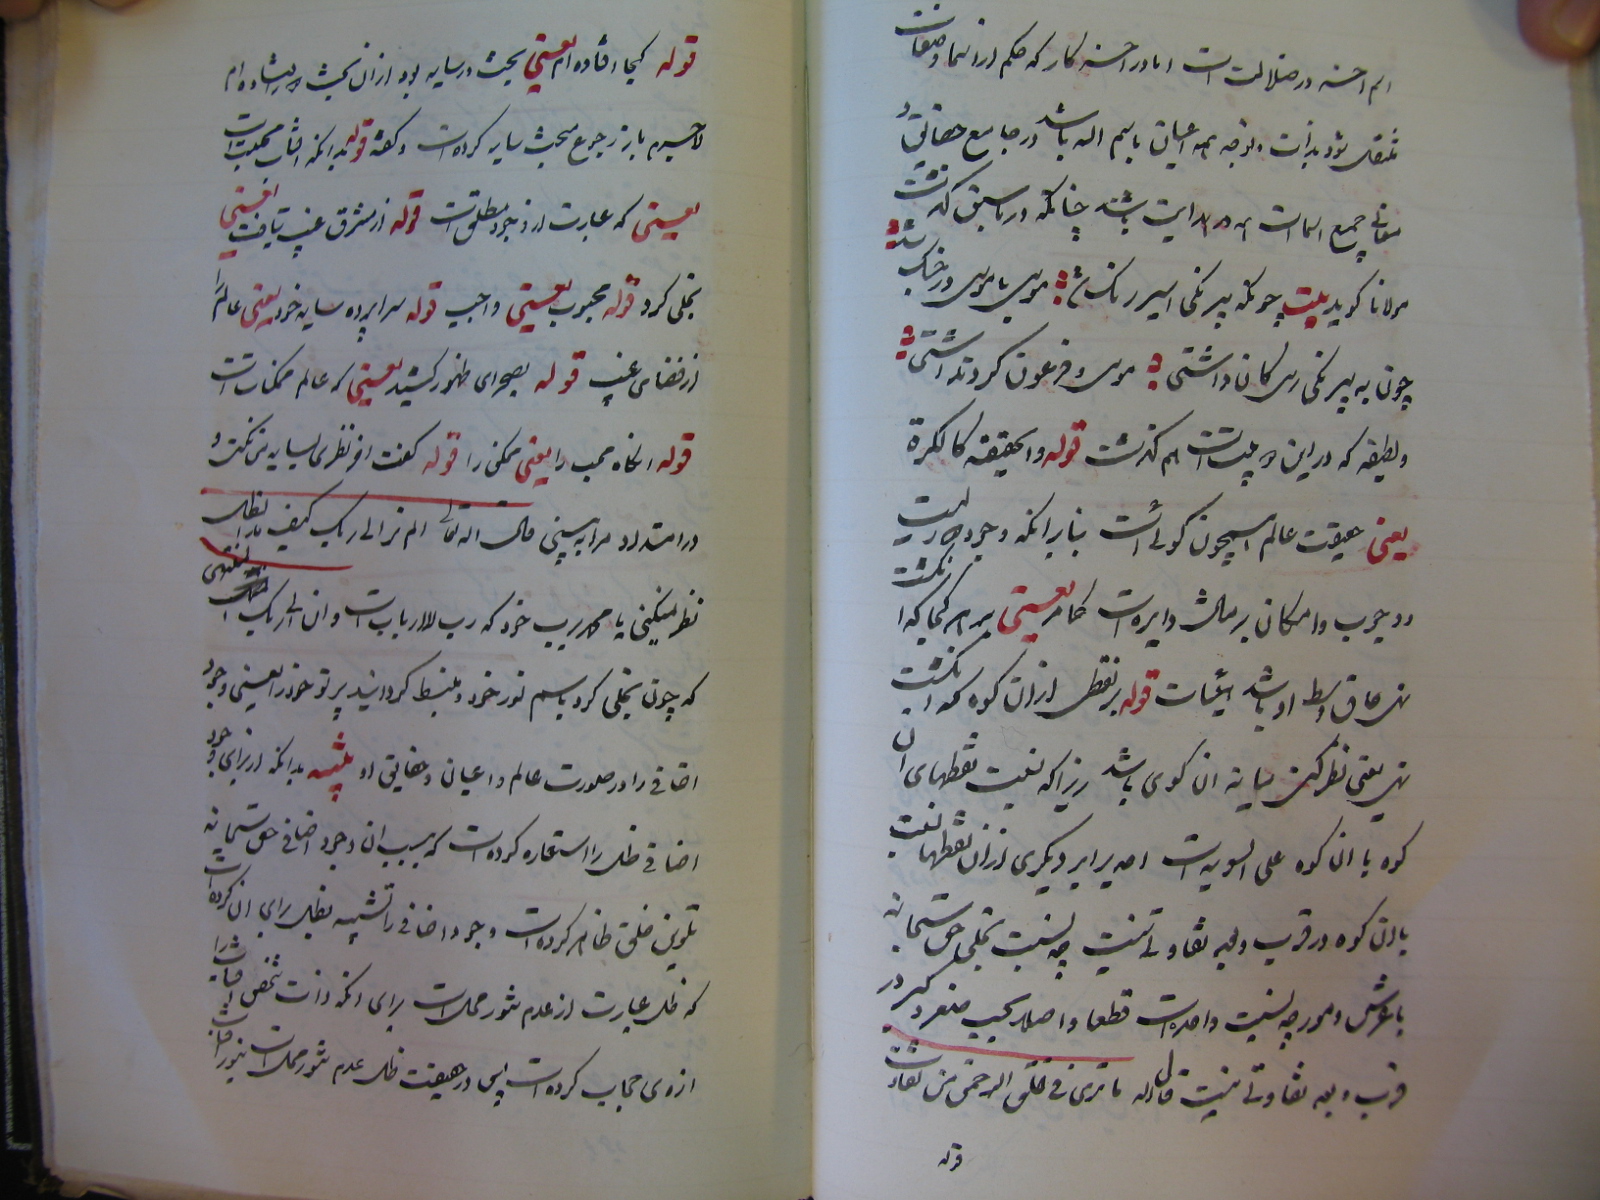 الم احسنه در ضلالت است اما در احسنه کار که حکم از اسما و صفات
منتقل شود بذات و توجه همه اعیان باسم اله باشد در جامع حقایق و
معانی جمیع اسما است
چنانکه در ما سبق گذشت
مولانا کوید بیت چونکه بیرنکی اسیر رنک شد موسی با موسی در جنک شد
چون به بیرنکی رسی کان داشتی موسی و فرعون کردند آشتی
و لطیفه که در این دو بیت است هم گذشت قوله و الحقیقة کالکرة
یعنی حقیقت عالم همچون کوئی است بنابر انکه وجود
و وجوب و امکان بر مثال دایره است کما مر یعنی بر هر کجا که انکشت
نهی حاق وسط او باشد قوله بر نقطی از آن کوه که انکشت
نهی یعنی نظر کنی میانه ان کوی باشد زیرا که نسبت نقطهای ان
کوه با ان کوه علی السویه است دیکری از ان نقطها نسبت
بان کوه در قرب و بعد تفاوتی نیست چه نسبت تجلی حق سبحانه
با عرش و مورچه نسبت واحد است قطعا و اصلا بحسب صغر و کبر در
قرب و بعد تفاوتی نیست قال اله ما تری فی خلق الرحمن من تفاوت
قوله
قوله کجا افتاده ام یعنی بحث در سایه بود از ان بحث
لاجرم باز رجوع مبحث سایه کرده است و کفته قوله بدانکه افتاب محبت
یعنی که عبارت از وجود مطلق است قوله از مشرق غیب بتافت یعنی
تجلی کرد قوله محبوب یعنی واجب قوله سراپرده سایه خود یعنی عالم را
از فضای غیب قوله بصحرای ظهور کشید یعنی که عالم ممکنات است
قوله انکاه محب را یعنی ممکن را قوله کفت اخر نظری بسایه من نکنی و
در امتداد او مرا به بینی قال اله تعالی الم تر الی ربک کیف مد الظل
نظر نمیکنی یا محمد برب خود که رب الارباب است و ان الی ربک المنتهی
که چون تجلی کرد باسم نور خود و منبسط کردانید پرتو خود را یعنی وجود
اضافی را در صورت عالم و اعیان و حقایق او تنبیه بدانکه از برای وجود
اضافی ظل را استعاره کرده است که بسبب ان وجود اضافی حق سبحانه
تلوین خلق ظاهر کرده است وجود اضافی را تشبیه بظل برای ان کرده است
که ظل عبارت از عدم نور محل است برای انکه ذات شخص
حجاب کرده است پس در حقیقت ظل عدم نور محل است